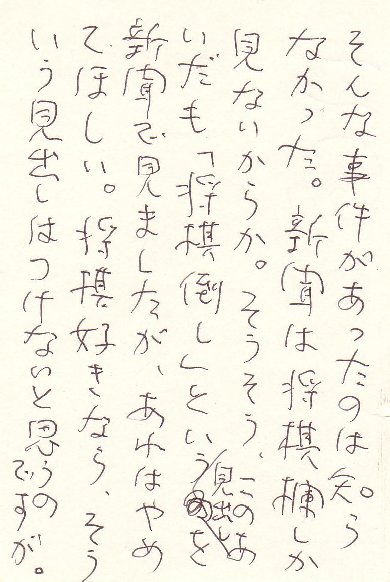 そんな事件があったのは知ら
なかった。新聞は将棋欄しか
見ないからか。そうそう、このあ
いだも「将棋倒し」という見出しを
新聞で見ましたが、あれはやめ
てほしい。将棋好きなら、そう
いう見出しはつけないと思うのですが。